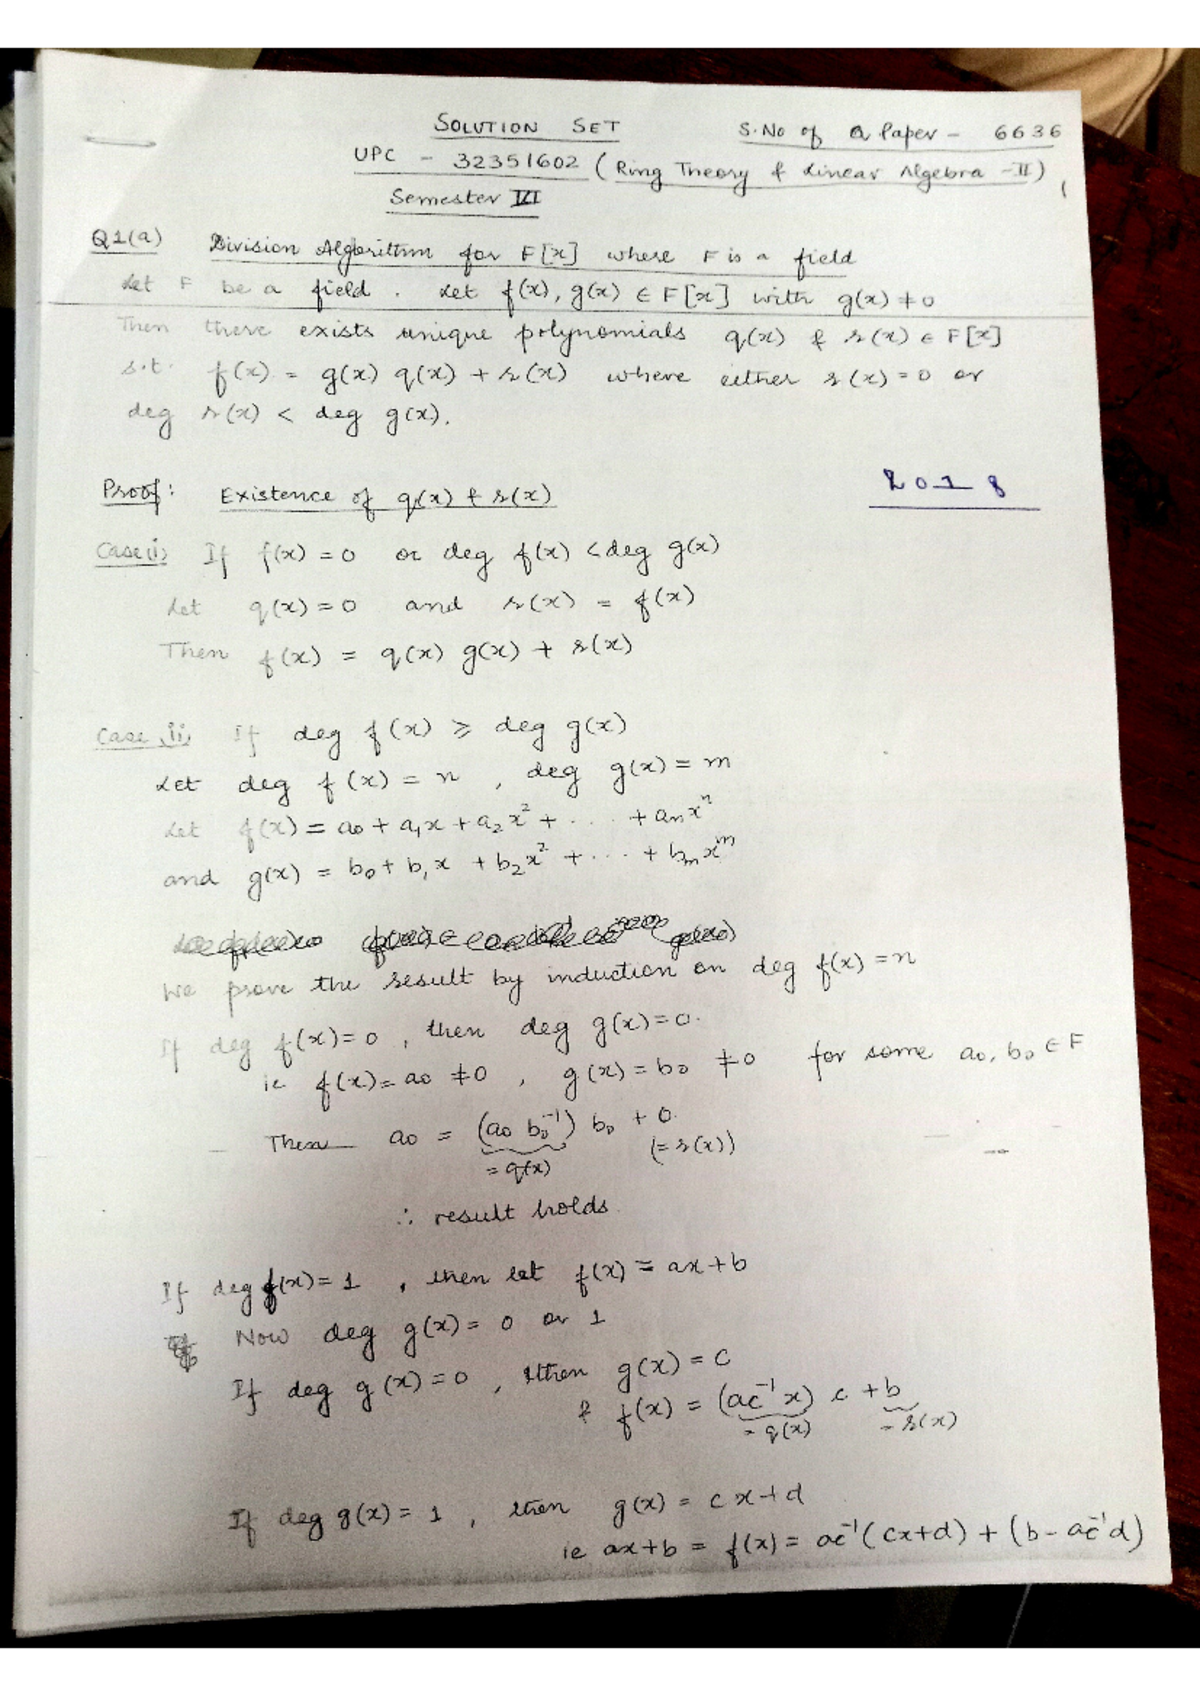 SOLUTION SET S.No of Q Paper - 6636
UPC - 32351602 (Ring Theory & Linear Algebra - II)
Semester VI
Q1(a) Division Algorithm for F[x] where F is a field
Let F be a field. Let f(x), g(x) ∈ F[x] with g(x) ≠ 0
Then there exists unique polynomials q(x) & r(x) ∈ F[x]
s.t. f(x) = g(x) q(x) + r(x) where either r(x) = 0 or
deg r(x) < deg g(x).
Proof: Existence of q(x) & r(x)
2018
Case(i) If f(x) = 0 or deg f(x) < deg g(x)
Let q(x) = 0 and r(x) = f(x)
Then f(x) = q(x) g(x) + r(x)
Case (ii) If deg f(x) ≥ deg g(x)
Let deg f(x) = n, deg g(x) = m
Let f(x) = a₀ + a₁x + a₂x² + .... + aₙxⁿ
and g(x) = b₀ + b₁x + b₂x² + .... + bₘxᵐ
We prove the result by induction on deg f(x) = n
If deg f(x) = 0, then deg g(x) = 0.
ie f(x) = a₀ ≠ 0, g(x) = b₀ ≠ 0 for some a₀, b₀ ∈ F
Then a₀ = (a₀ b₀⁻¹) b₀ + 0.
= q(x) (= r(x))
∴ result holds.
If deg f(x) = 1, then let f(x) = ax + b
Now deg g(x) = 0 or 1
If deg g(x) = 0, then g(x) = c
& f(x) = (ac⁻¹x) c + b
= q(x) = r(x)
If deg g(x) = 1, then g(x) = cx + d
ie ax + b = f(x) = ac⁻¹(cx + d) + (b - ac⁻¹d)